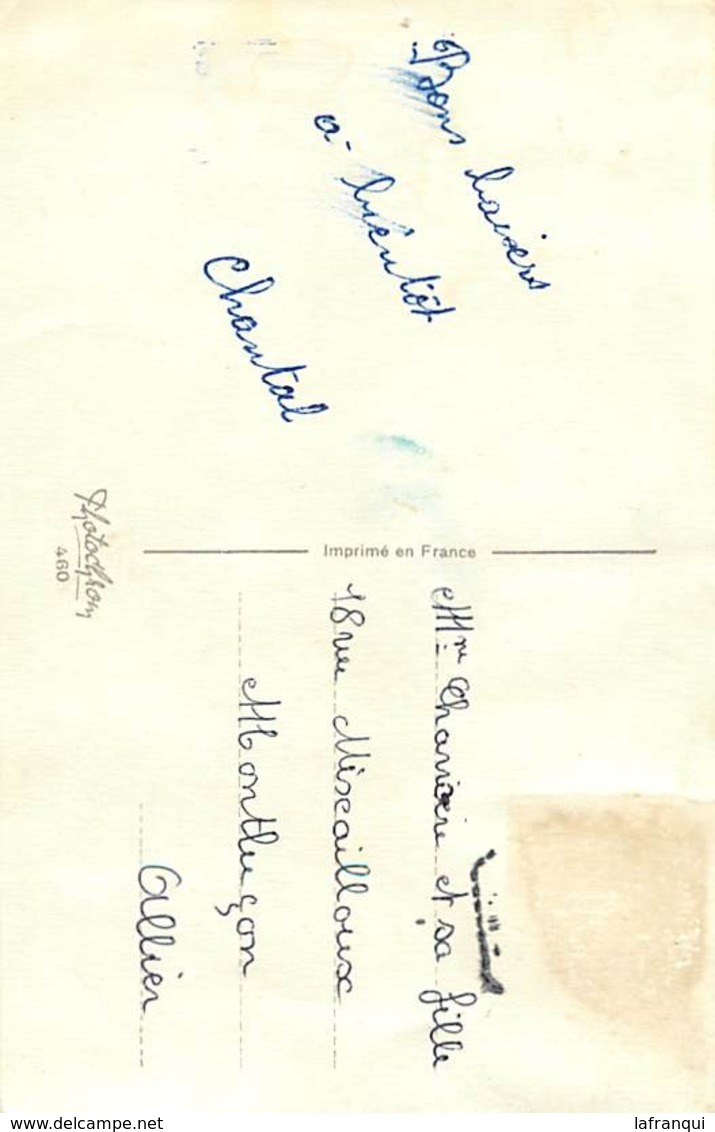 Bons baisers
a bientôt
Chantal
Photochrom
460
Imprimé en France
Mme et sa fille
18 rue Miscailloux
Montluçon
Allier
delcampe.net
lafranqui